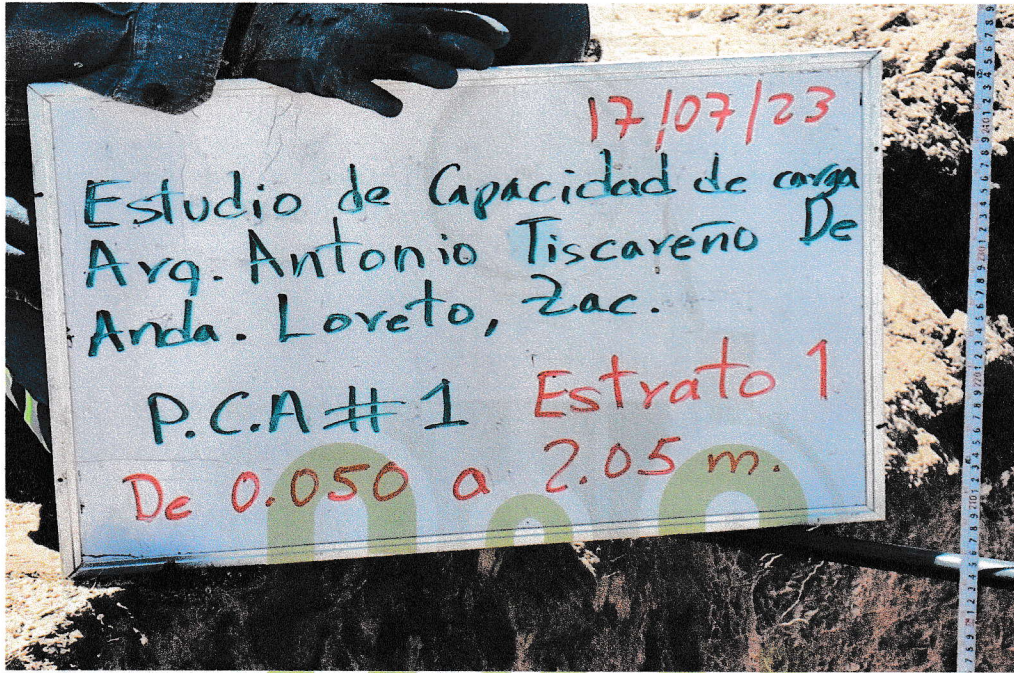 17/07/23
Estudio de Capacidad de carga
Arq. Antonio Tiscareño De
Anda. Loreto, Zac.
P.C.A # 1 Estrato 1
De 0.050 a 2.05 m.